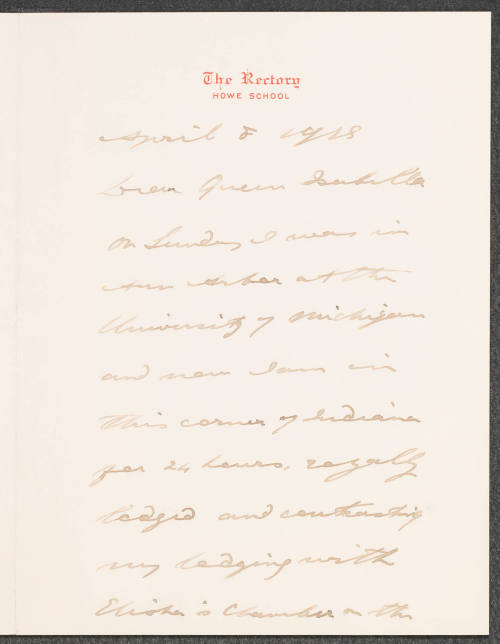 The Rectory
HOWE SCHOOL
April 8 1918
Dear Queen Isabella
On Sunday I was in
Ann Arbor at the
University of Michigan
and now I am in
this corner of Indiana
for 24 hours, royally
lodged and contrasting
my lodging with
Elisha's Chamber on the